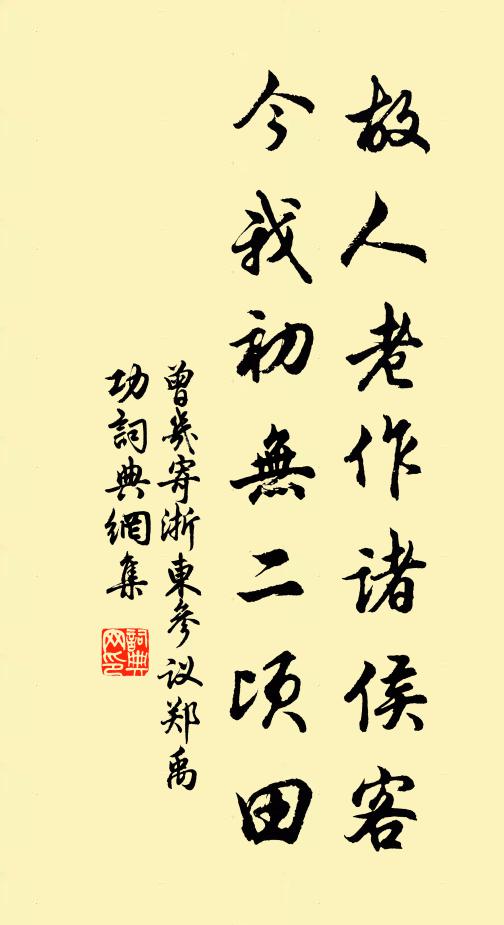 故人老作诸侯客
今我初無二顷田
曾幾寄浙東參议郑禹
功詞典網集
詞典网印